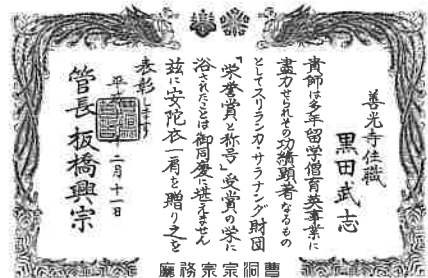 善光寺住職
黒田武志
貴師は多年留学僧育英事業に
盡力せられその功績顕著なるもの
としてスリランカ・サラナンダ財団
「栄誉賞と称号」受賞の栄に
浴されたことは御同慶に堪えません
茲に安陀衣一肩を贈り之を
表彰します
平 二月十一日
管長 板橋興宗
曹洞宗宗務廳